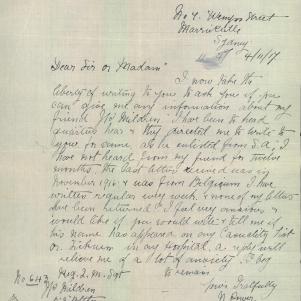 No 4. Wemyss Street
Marrickville
Sydney
4/11/17
Dear Sir or Madam
I now take the
liberty of writing to you to ask you if you
can give me any information about my
friend Pte Mildren. I have been to head
quarters here & they directed me to write to
you, for same, as he enlisted from S.A, I
have not heard from my friend for twelve
months, the last letter received was in
November 1916 & was from Belgium I have
written regular every week, & none of my letters
has been returned. I feel very anxious &
would like if you would write & tell me if
his name has appeared on any Casualty List
or Sickness in any hospital, a reply will
relieve me of a lot of anxiety. I beg
to remain
No 643 Reg. Q. M. Sgt
Yours Faithfully
Mildren